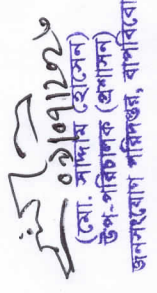 ০১/০৭/২০২৩
(মো. সাদ্দাম হোসেন)
উপ-পরিচালক (প্রশাসন)
জনসংযোগ পরিদপ্তর, বাপবিবো